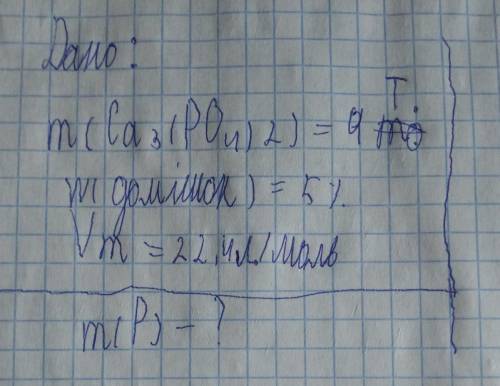 Дано:
m(Ca3(PO4)2) = 9 т.
m(домішок) = 5%
Vm = 22,4л/моль
m(P) - ?